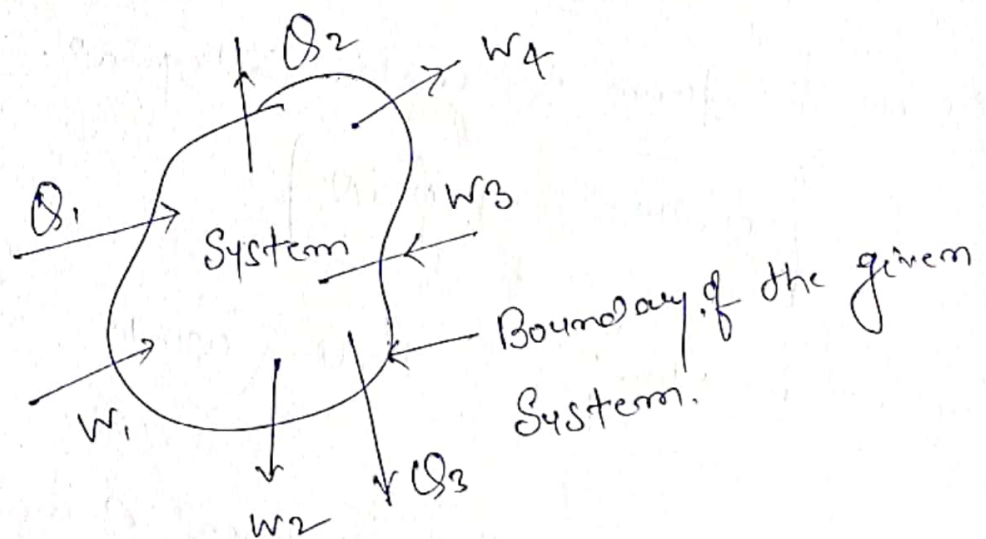 Q2
W4
Q1
W3
System
Boundary of the given
System.
W1
Q3
W2